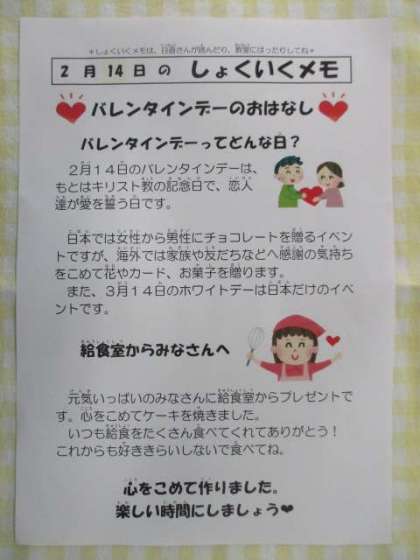 ＊しょくいくメモは、日直さんが読んだり、教室にはったりしてね＊
２月１４日の しょくいくメモ
バレンタインデーのおはなし
バレンタインデーってどんな日？
２月１４日のバレンタインデーは、
もとはキリスト教の記念日で、恋人
達が愛を誓う日です。
日本では女性から男性にチョコレートを贈るイベン
トですが、海外では家族や友だちなどへ感謝の気持ち
をこめて花やカード、お菓子を贈ります。
また、３月１４日のホワイトデーは日本だけのイベ
ントです。
給食室からみなさんへ
元気いっぱいのみなさんに給食室からプレゼントで
す。心をこめてケーキを焼きました。
いつも給食をたくさん食べてくれてありがとう！
これからも好ききらいしないで食べてね。
心をこめて作りました。
楽しい時間にしましょう♥